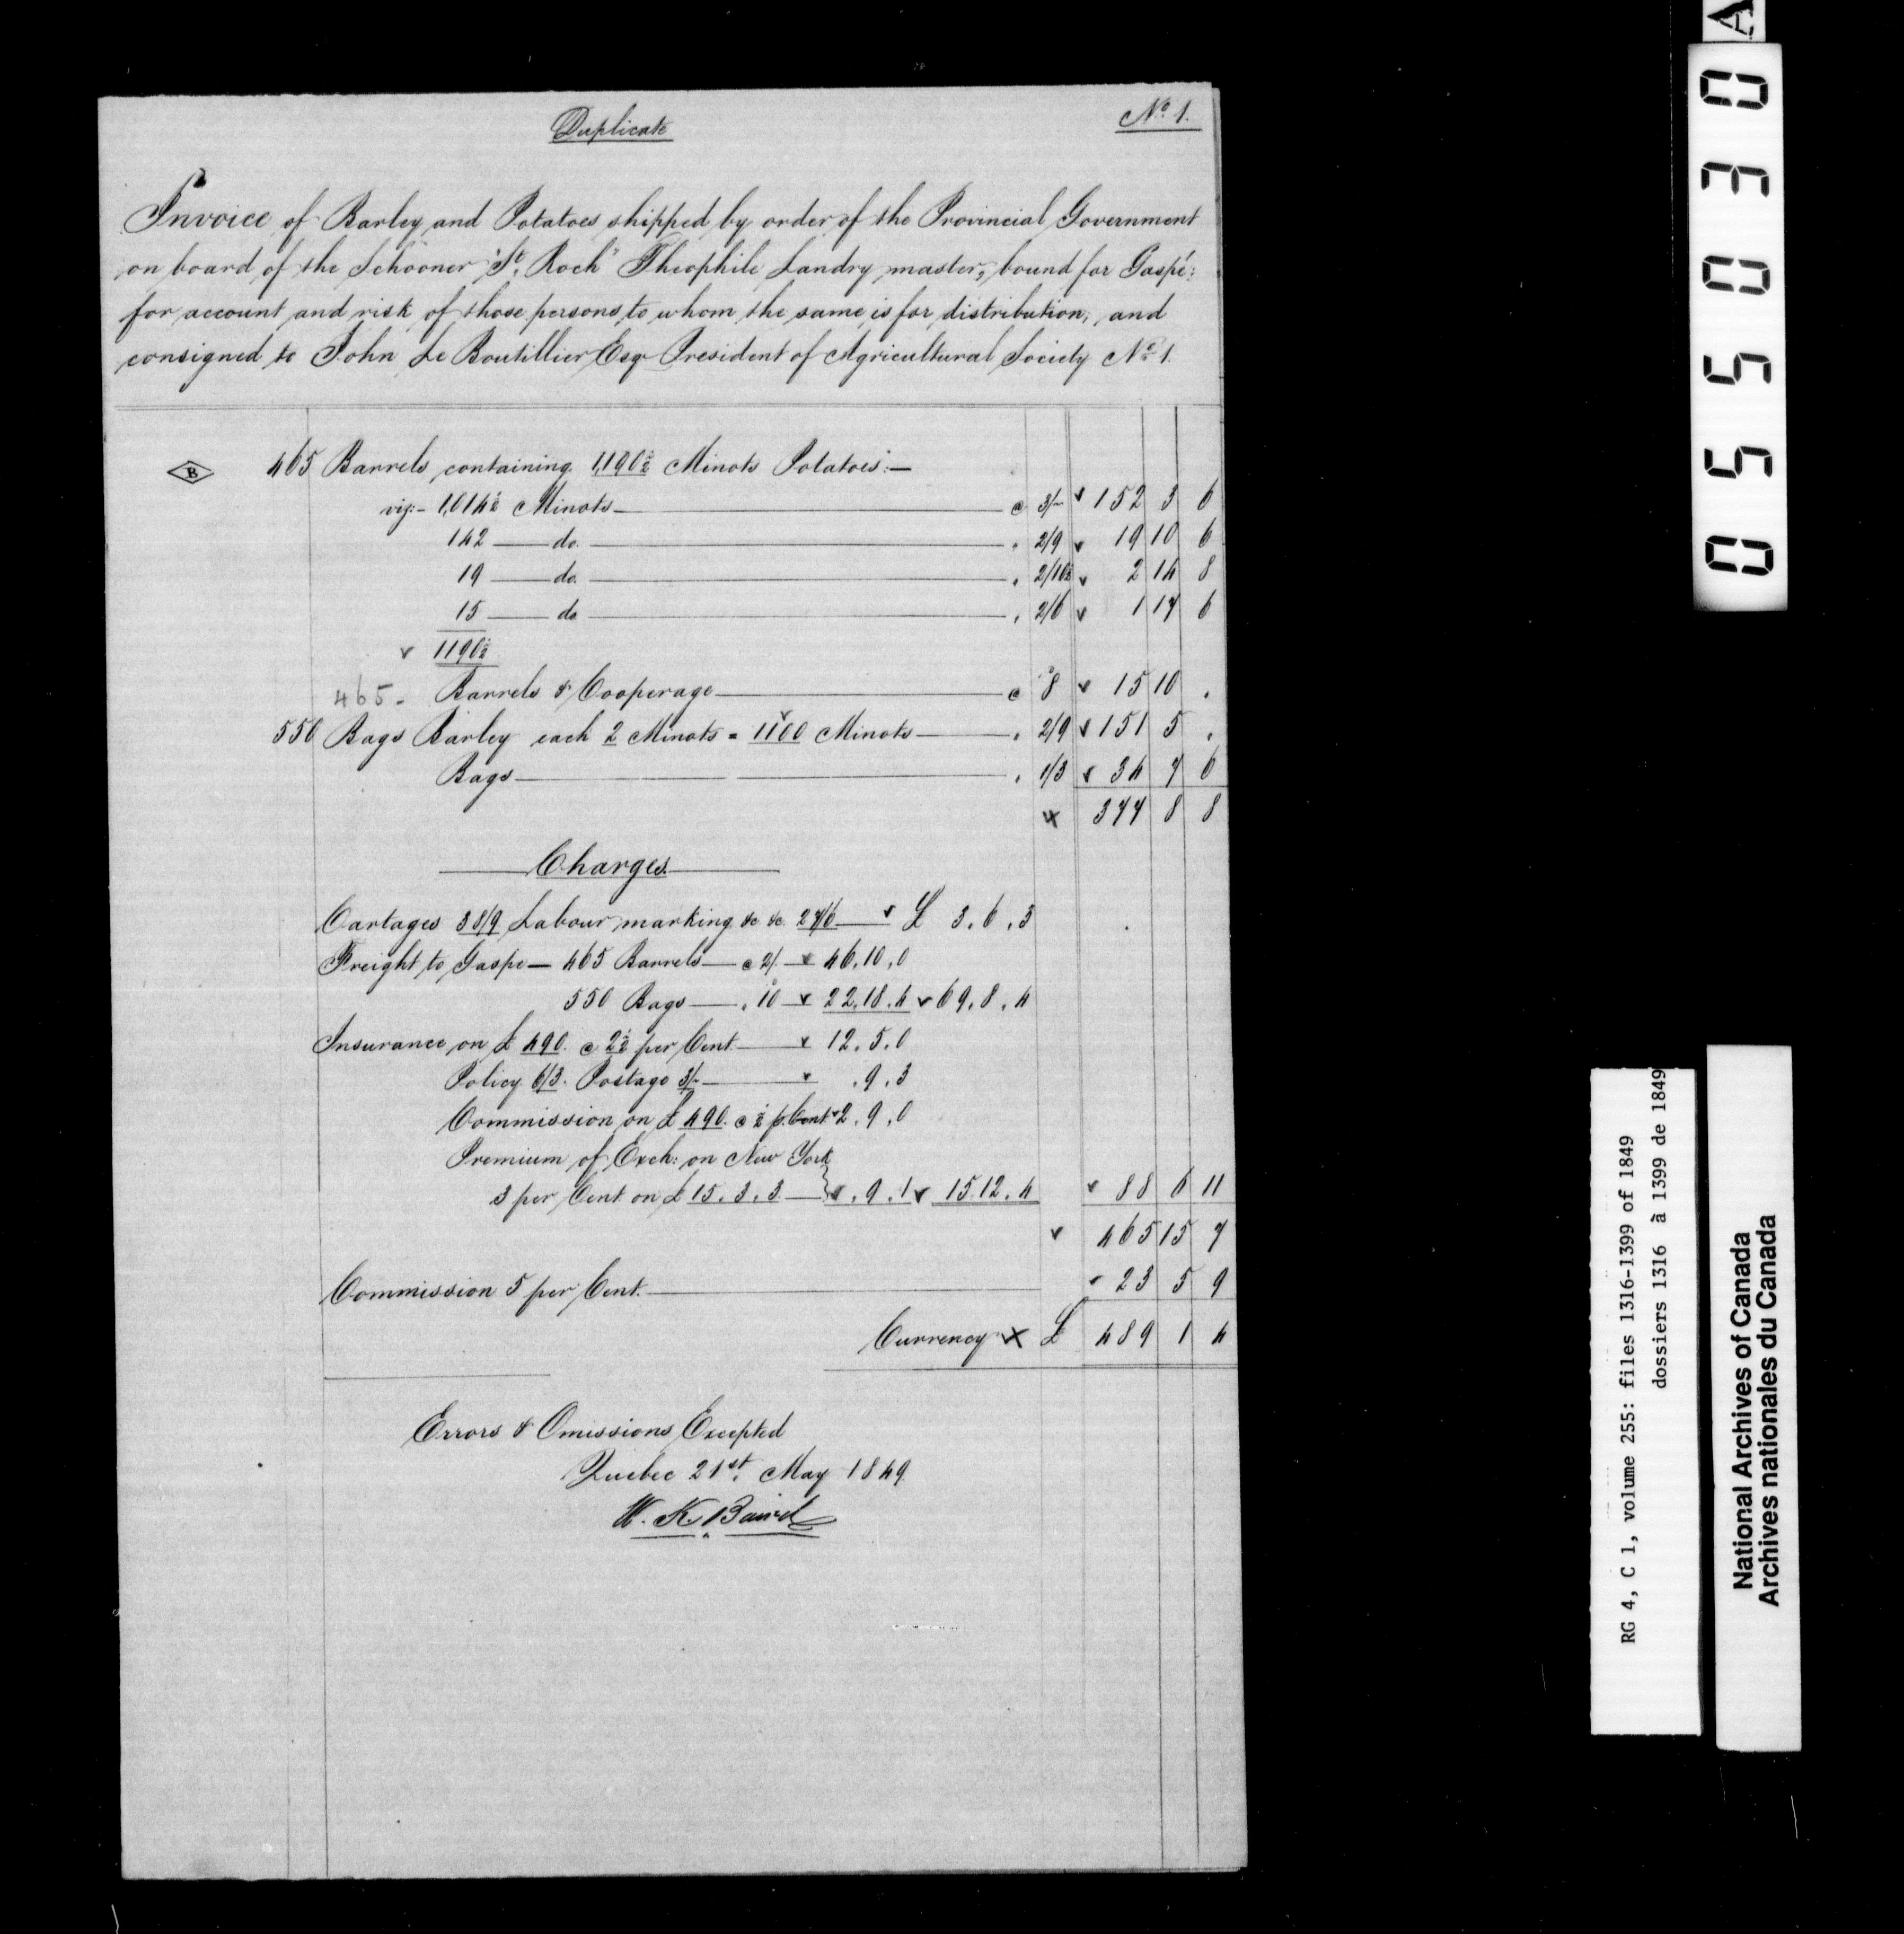 Duplicate
No 1.
Invoice of Barley and Potatoes shipped by order of the Provincial Government
on board of the Schooner "St. Roch" Theophile Landry master, bound for Gaspé:
for account and risk of those persons to whom the same is for distribution, and
consigned to John Le Boutillier Esqr President of Agricultural Society No 1.
B 465 Barrels containing 1,190½ Minots Potatoes:—
viz:- 1,014½ Minots — @ 3/- 152 3 6
142 — do. — " 2/9 19 10 6
19 — do. — " 2/10½ 2 14 8
15 — do — " 2/6 1 17 6
1190½
465- Barrels & Cooperage — @ 8d 15 10 "
550 Bags Barley each 2 Minots = 1100 Minots — " 2/9 151 5 "
Bags — " 1/3 34 7 6
377 8 8
Charges
Cartages 38/9 Labour marking &c &c 27/6 — £ 3.6.3
Freight to Gaspe — 465 Barrels — @ 2/. — 46.10.0
550 Bags — " 10d 22.18.4 69.8.4
Insurance on £490. @ 2½ per Cent. — 12.5.0
Policy 6/3. Postage 3/- — .9.3
Commission on £490. @ ½ p. Cent 2.9.0
Premium of Exch: on New York
3 per Cent on £15.3.3 — .9.1 15.12.4 88 6 11
465 15 7
Commission 5 per Cent. — 23 5 9
Currency £ 489 1 4
Errors & Omissions Excepted
Quebec 21st. May 1849
W. K. Baird
A
05030
RG 4, C 1, volume 255: files 1316-1399 of 1849
dossiers 1316 à 1399 de 1849
National Archives of Canada
Archives nationales du Canada